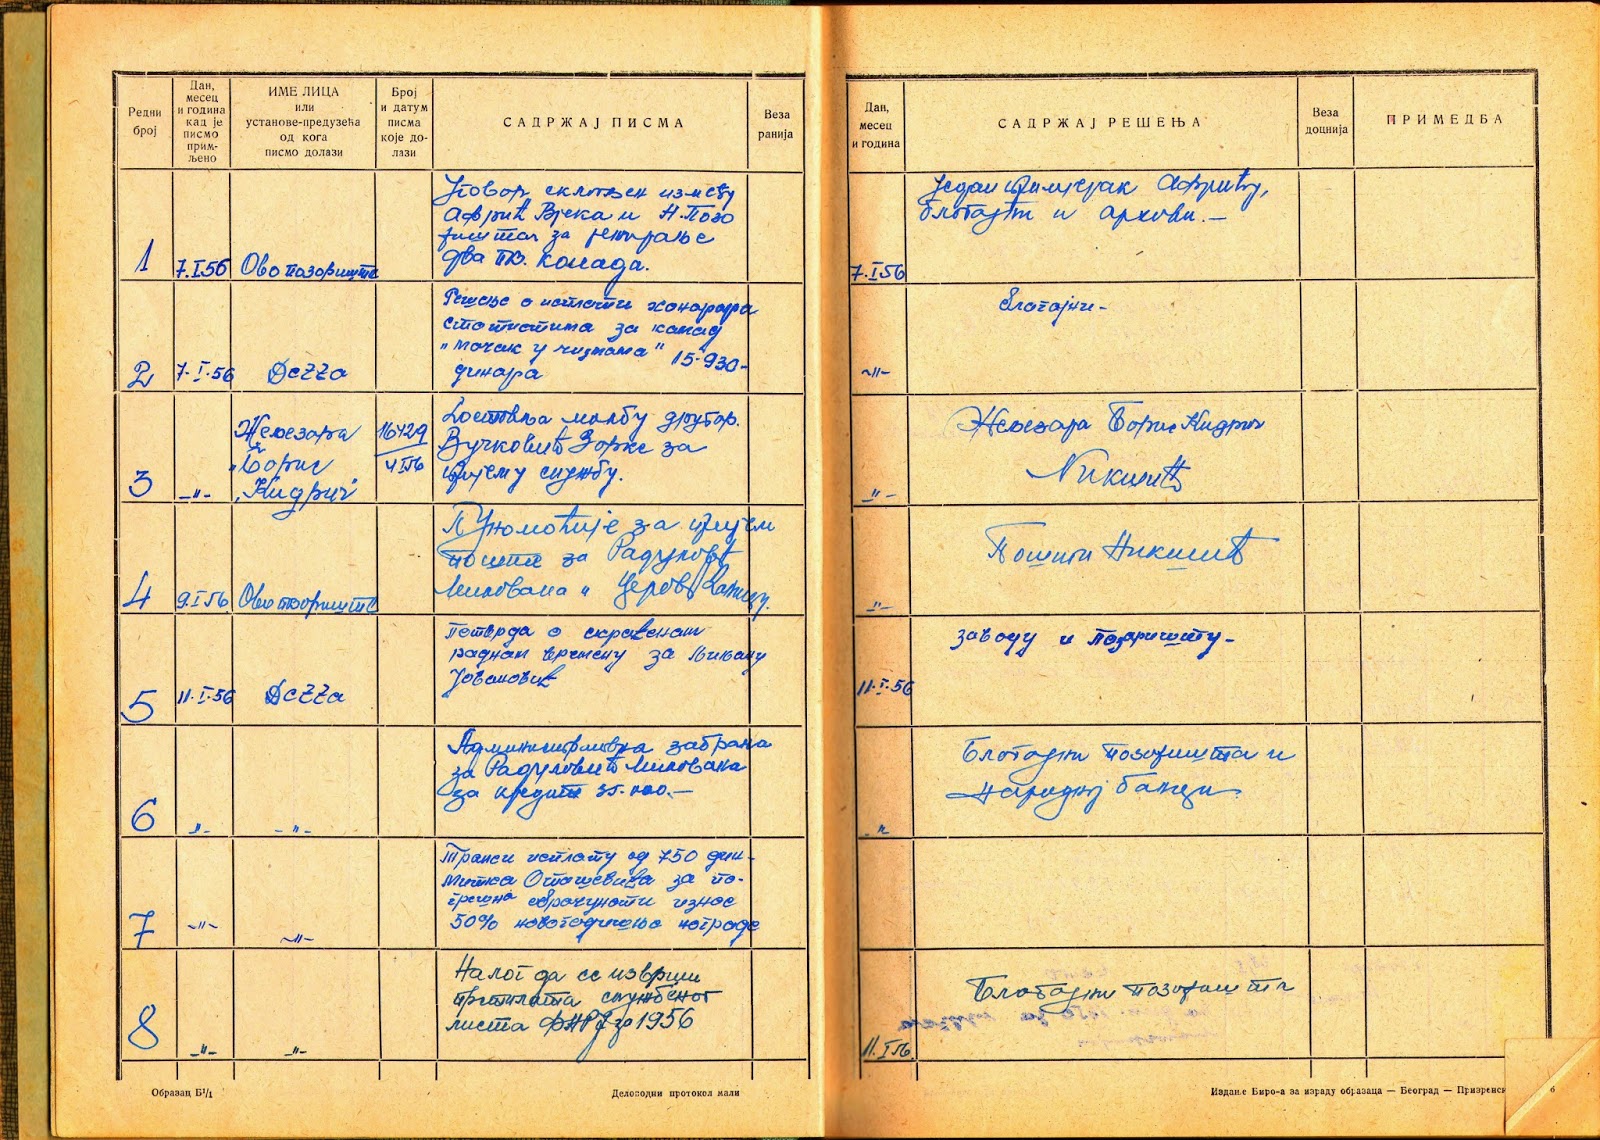 Редни
број
Дан,
месец
и година
кад је
писмо
прим-
љено
ИМЕ ЛИЦА
или
установе-предузећа
од кога
писмо долази
Број
и датум
писма
које до-
лази
САДРЖАЈ ПИСМА
Веза
ранија
Дан,
месец
и година
САДРЖАЈ РЕШЕЊА
Веза
доцнија
ПРИМЕДБА
1
7.I.56
Ово позориште
Уговор склопљен између
Афрић Вјека и Н. Позо
ришта за режирање
два поз. комада.
7.I.56
Један примјерак Африћу,
благајни и архиви.-
2
7.I.56
Решење о исплати хонорара
статистима за комад
"Мачак у чизмама" 15.930-
динара
-"-
Благајни-
3
-"-
Жељезара
"Борис
Кидрич"
16429
4 I 56
Доставља молбу другар.
Вучковић Зорке за
пријем у службу.
-"-
Жељезара Борис Кидрич
Никшић
4
9.I 56
Ово позориште
Пуномоћије за пријем
поште за Радуловић
Милована и
-"-
Пошти Никшић
5
11.I.56
Потврда о скраћеном
радном времену за Љиљану
Јовановић
11.I.56
Заводу и позоришту-
6
-"-
-"-
Административна забрана
за Радуловић Милована
за кредит 35.000.-
-"-
Благајни позоришта и
Народној банци
7
-"-
-"-
исплату од 750 дин-
Митка Оташевића за по-
грешно обрачунати износ
50% новогодишње награде
8
-"-
-"-
Налог да се изврши
претплата службеног
листа ФНРЈ за 1956
11.I 56
Благајни позоришта
Образац Б¹/1
Деловодни протокол мали
Издање Биро-а за израду образаца — Београд — Призренск
6